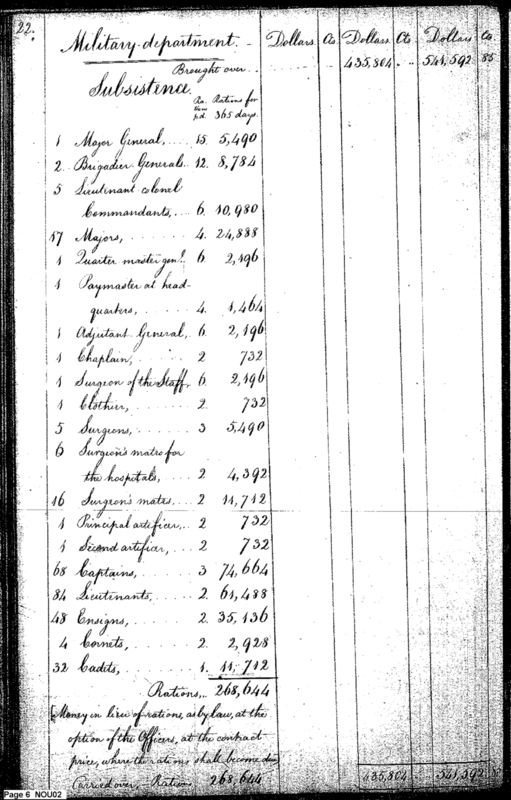 22.
Military department. Dollars. Cts Dollars Cts Dollars Cts
Brought over. 435,804 .. 541,592 85
Subsistence.
Ra. Rations for
p.d. 365 days.
1 Major General, 15. 5,490
2. Brigadier Generals. 12. 8,784
5 Lieutenant colonel
Commandants, 6. 10,980
17 Majors, 4. 24,888
1 Quarter master genl. 6 2,196
1 Paymaster at head-
quarters, 4. 1,464
1 Adjutant General, 6. 2,196
1 Chaplain, 2 732
1 Surgeon of the Staff, 6. 2,196
1 Clothier, 2. 732
5 Surgeons, 3 5,490
6 Surgeon's mates for
the hospitals, 2 4,392
16 Surgeon's mates, 2 11,712
1 Principal artificer, 2 732
1 Second artificer, 2 732
68 Captains, 3 74,664
84 Lieutenants, 2. 61,488
48 Ensigns, 2. 35,136
4 Cornets, 2. 2,928
32 Cadets, 1. 11,712
Rations, 268,644
[Money in lieu of rations, as by law, at the
option of the Officers, at the contract
price, where the rations shall become due
Carried over, Rations 268,644 435,804 .. 541,592 85
Page 6 NOU02